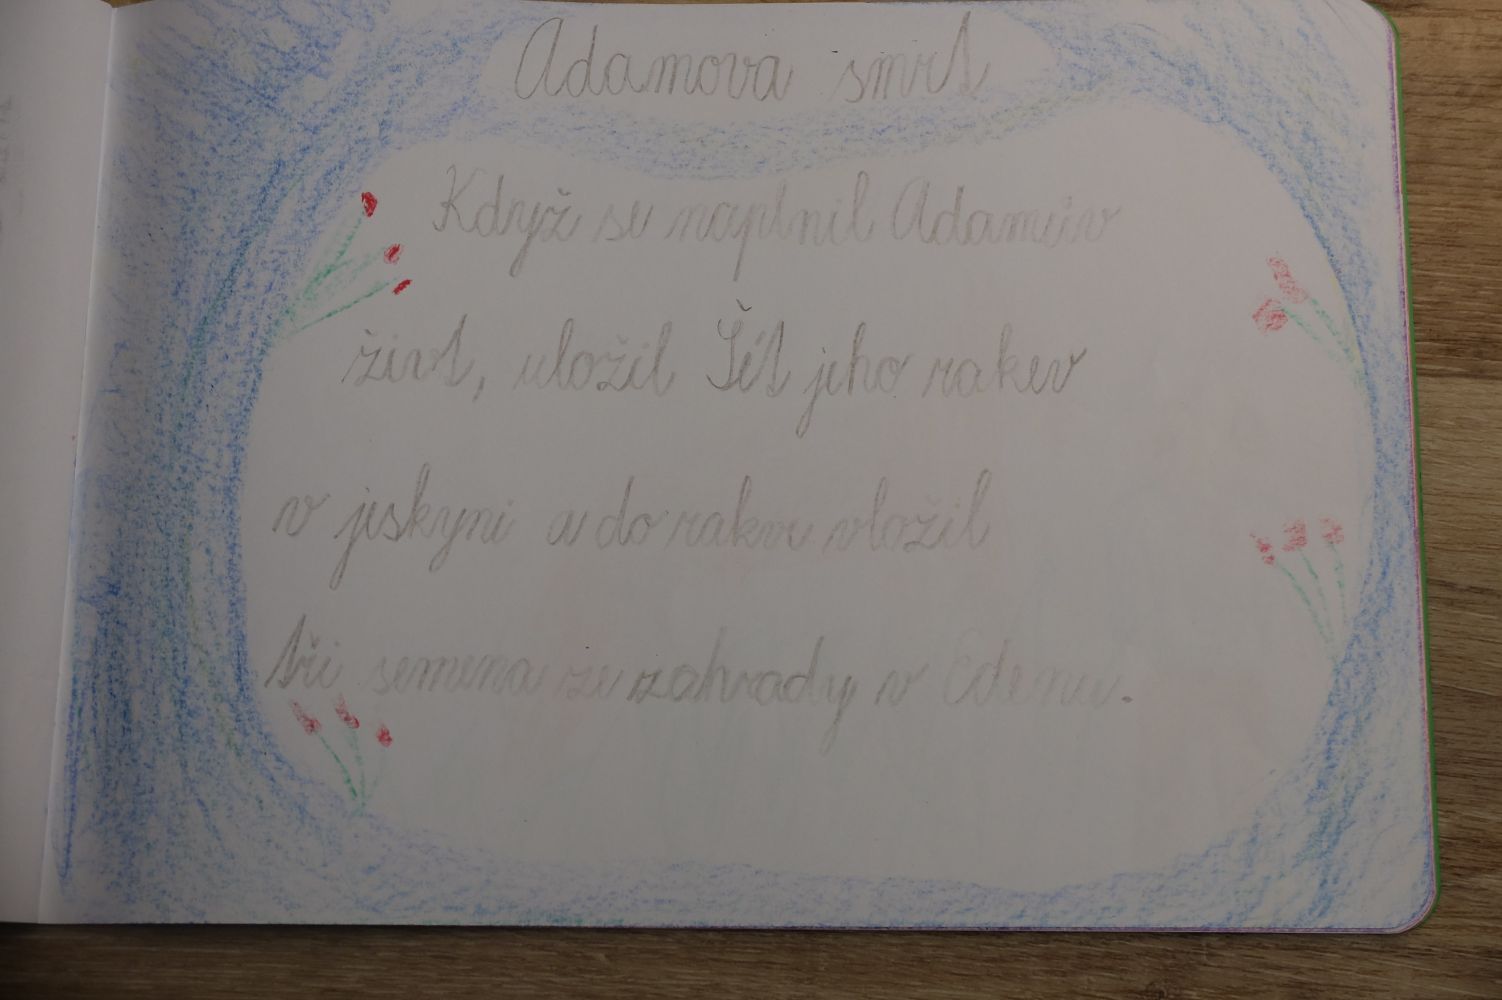 Adamova smrt
Když se naplnil Adamův
život, uložil Šét jeho rakev
v jeskyni a do rakve vložil
tři semena ze zahrady v Edenu.